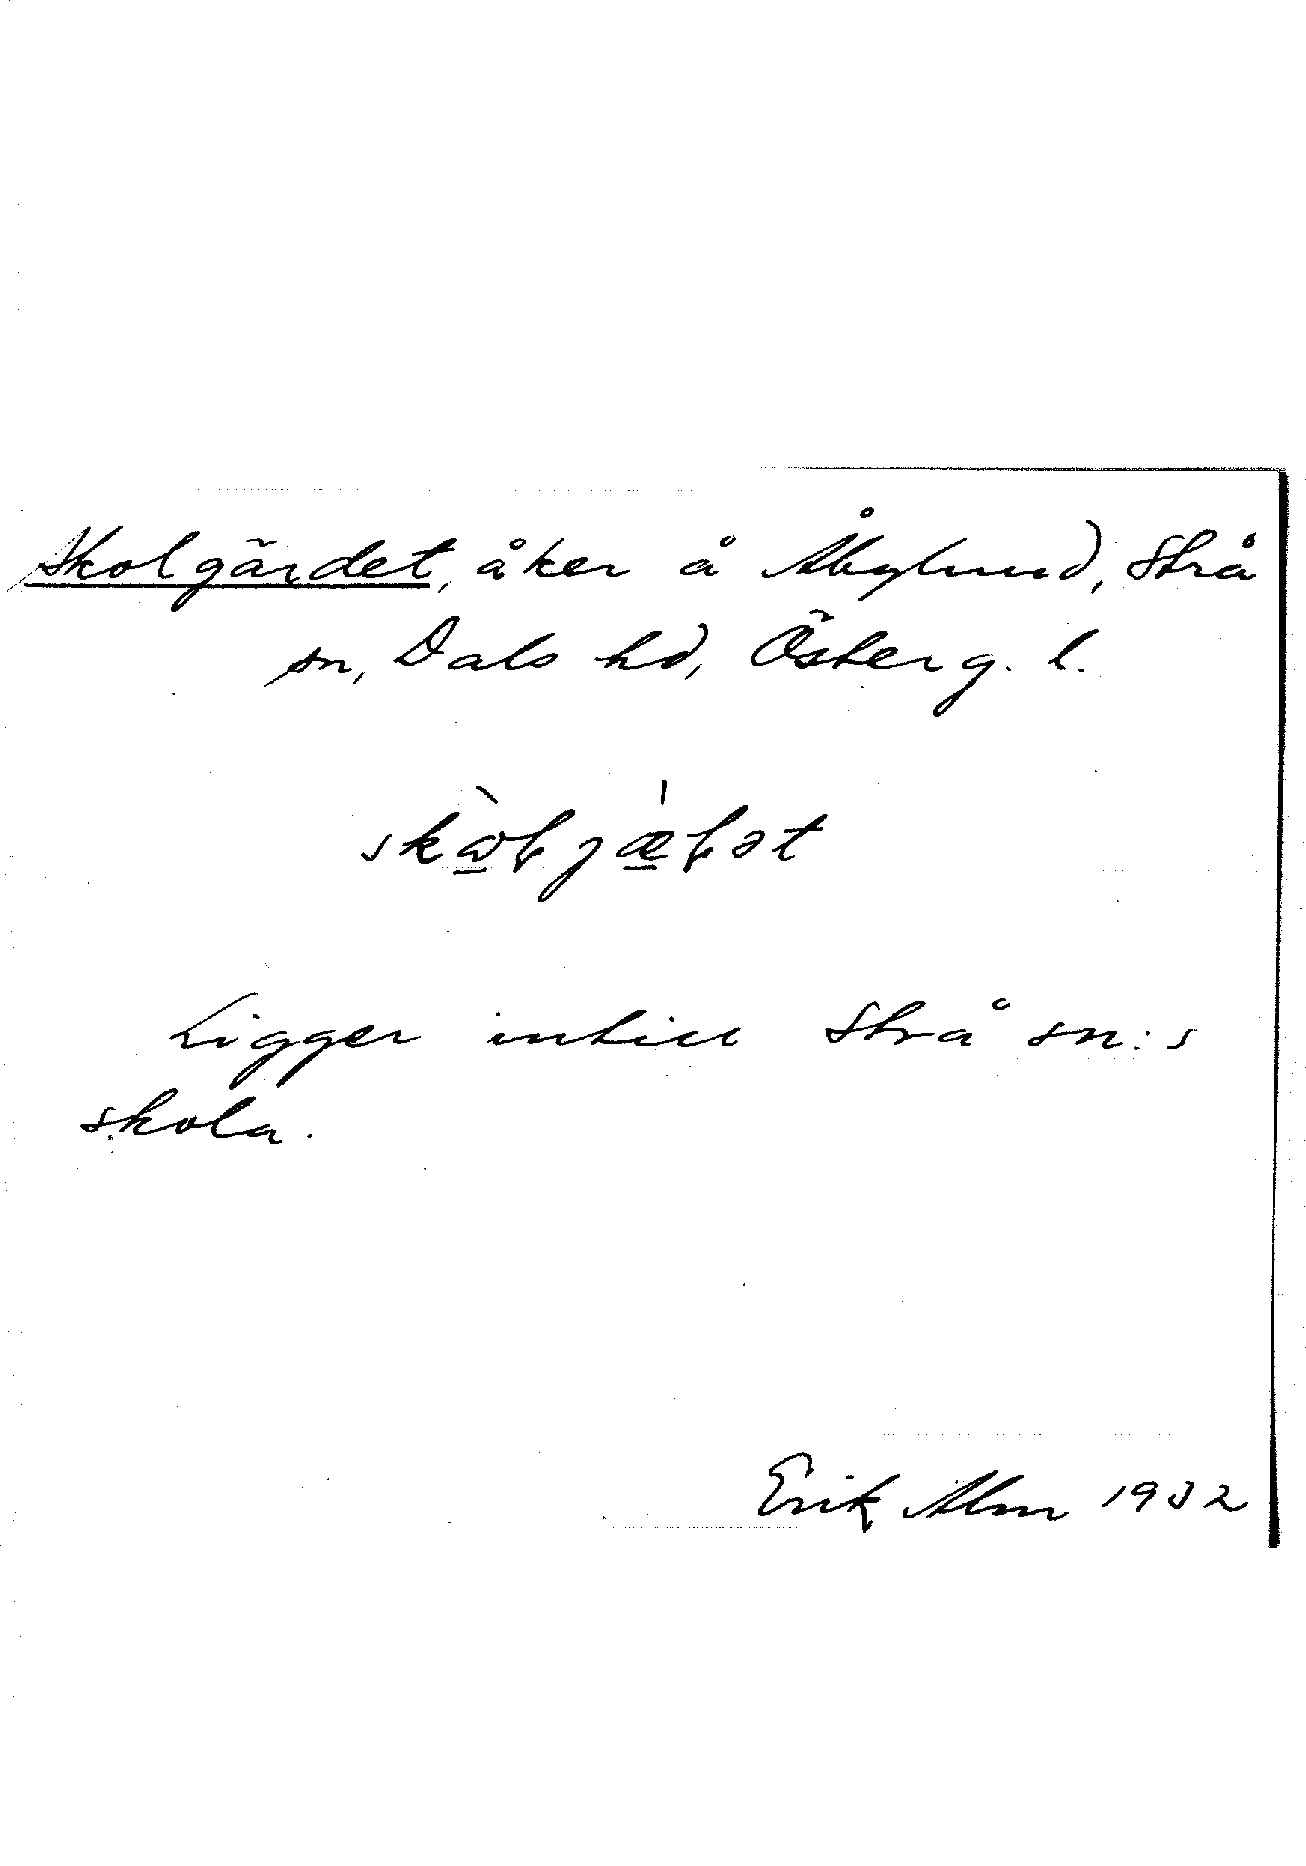 Skolgärdet, åker å Åbylund, Strå
sn, Dals hd, Österg. l.
Ligger intill Strå sn:s
skola.
Erik Alm 1932